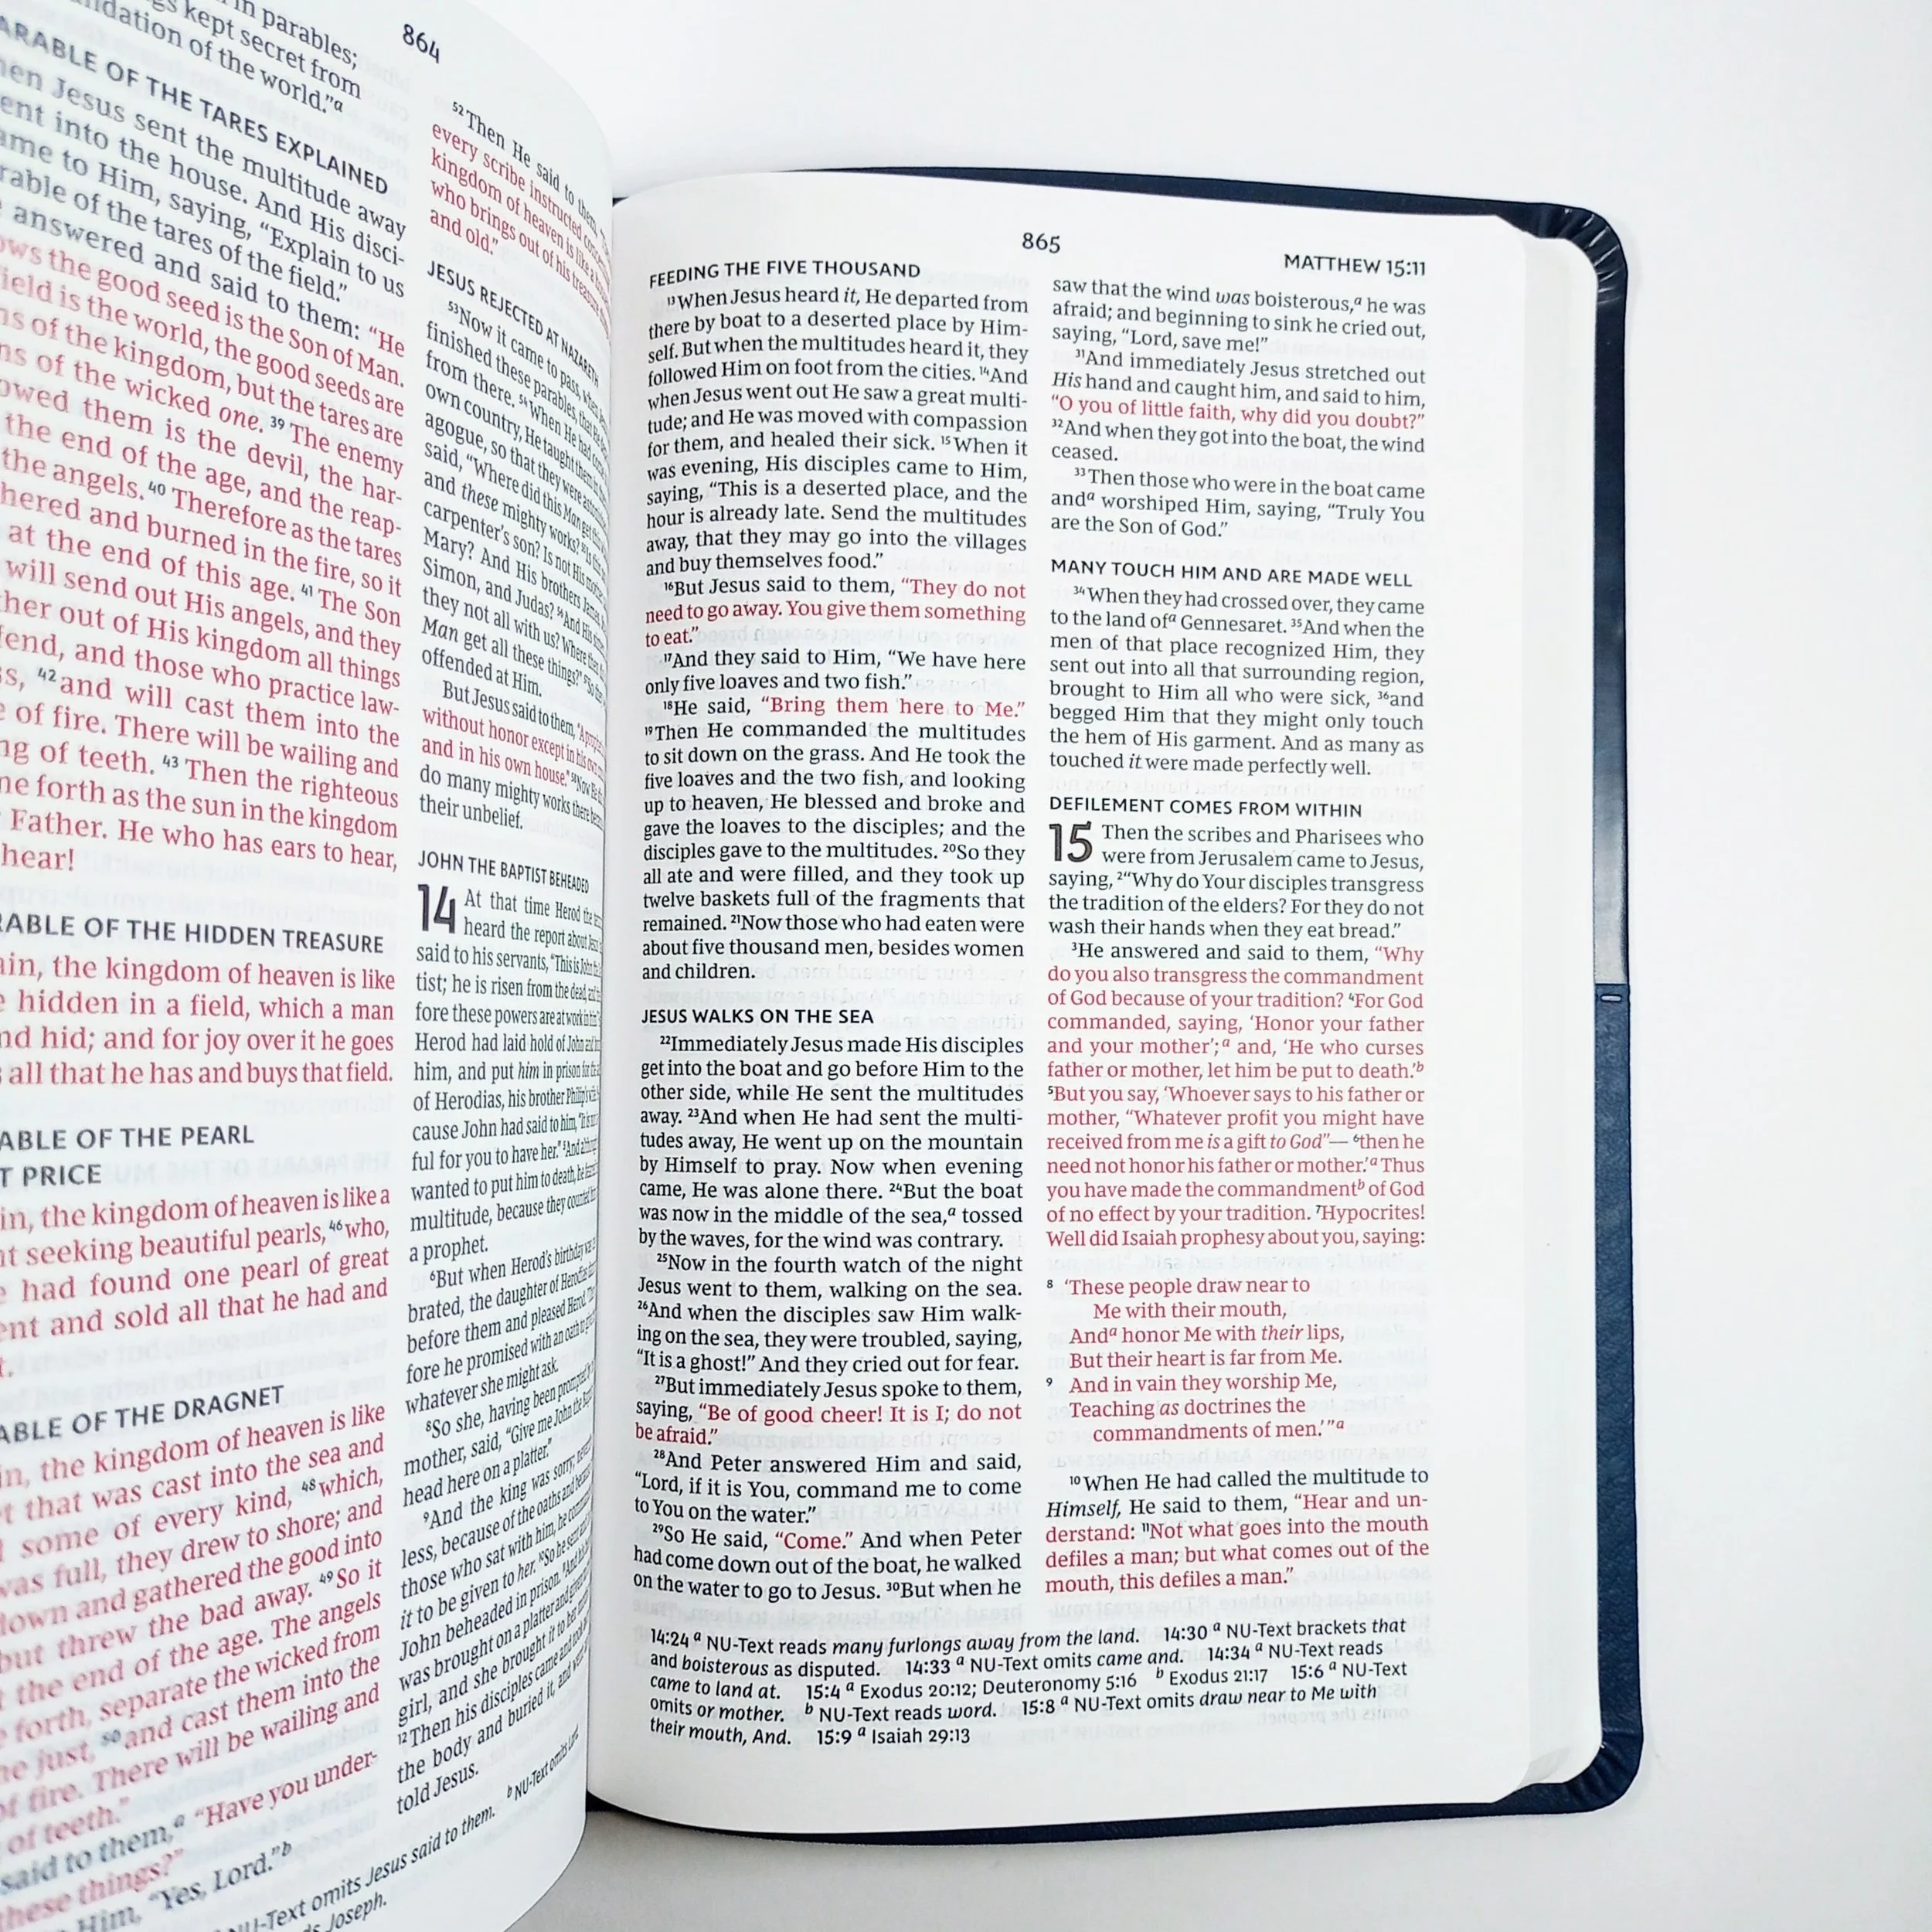 in parables;
kept secret from
dation of the world."a
ARABLE OF THE TARES EXPLAINED
Jesus sent the multitude away
ent into the house. And His disci-
ame to Him, saying, "Explain to us
rable of the tares of the field."
answered and said to them: "He
ows the good seed is the Son of Man.
ield is the world, the good seeds are
ns of the kingdom, but the tares are
ns of the wicked one. 39 The enemy
owed them is the devil, the har-
the end of the age, and the reap-
the angels. 40 Therefore as the tares
hered and burned in the fire, so it
at the end of this age. 41 The Son
will send out His angels, and they
her out of His kingdom all things
fend, and those who practice law-
s, 42 and will cast them into the
of fire. There will be wailing and
ng of teeth. 43 Then the righteous
ne forth as the sun in the kingdom
Father. He who has ears to hear,
hear!
RABLE OF THE HIDDEN TREASURE
ain, the kingdom of heaven is like
hidden in a field, which a man
nd hid; and for joy over it he goes
all that he has and buys that field.
ABLE OF THE PEARL
T PRICE
in, the kingdom of heaven is like a
nt seeking beautiful pearls, 46 who,
had found one pearl of great
ent and sold all that he had and
ABLE OF THE DRAGNET
in, the kingdom of heaven is like
t that was cast into the sea and
some of every kind, 48 which,
was full, they drew to shore; and
down and gathered the good into
but threw the bad away. 49 So it
the end of the age. The angels
forth, separate the wicked from
he just, 50 and cast them into the
of fire. There will be wailing and
of teeth."
said to them,a "Have you under-
these things?"
Him, "Yes, Lord."b
864
52 Then He said to them,
every scribe instructed
kingdom of heaven is like a
who brings out of his treasure
and old."
JESUS REJECTED AT NAZARETH
53 Now it came to pass, when
finished these parables, that He
from there. 54 When He had
own country, He taught them
agogue, so that they were
said, "Where did this Man get
and these mighty works?
carpenter's son? Is not His
Mary? And His brothers James,
Simon, and Judas? 56 And His
they not all with us? Where
Man get all these things?"
offended at Him.
But Jesus said to them,
without honor except in his own
and in his own house."
do many mighty works there
their unbelief.
JOHN THE BAPTIST BEHEADED
14 At that time Herod the
heard the report about
said to his servants, "This is John the
tist; he is risen from the dead, and
fore these powers are at work in
Herod had laid hold of John and
him, and put him in prison for the
of Herodias, his brother Philip's
cause John had said to him,
ful for you to have her."
wanted to put him to death, he
multitude, because they counted
a prophet.
6 But when Herod's birthday was
brated, the daughter of Herodias
before them and pleased Herod.
fore he promised with an oath to
whatever she might ask.
8 So she, having been prompted
mother, said, "Give me John the
head here on a platter."
9 And the king was sorry;
less, because of the oaths and
those who sat with him, he
it to be given to her. 10 So he sent
John beheaded in prison.
was brought on a platter and
girl, and she brought it to her
12 Then his disciples came and took
the body and buried it, and
told Jesus.
NU-Text omits Jesus said to them. b NU-Text omits
Joseph.
865
MATTHEW 15:11
FEEDING THE FIVE THOUSAND
13 When Jesus heard it, He departed from
there by boat to a deserted place by Him-
self. But when the multitudes heard it, they
followed Him on foot from the cities. 14 And
when Jesus went out He saw a great multi-
tude; and He was moved with compassion
for them, and healed their sick. 15 When it
was evening, His disciples came to Him,
saying, "This is a deserted place, and the
hour is already late. Send the multitudes
away, that they may go into the villages
and buy themselves food."
16 But Jesus said to them, "They do not
need to go away. You give them something
to eat."
17 And they said to Him, "We have here
only five loaves and two fish."
18 He said, "Bring them here to Me."
19 Then He commanded the multitudes
to sit down on the grass. And He took the
five loaves and the two fish, and looking
up to heaven, He blessed and broke and
gave the loaves to the disciples; and the
disciples gave to the multitudes. 20 So they
all ate and were filled, and they took up
twelve baskets full of the fragments that
remained. 21 Now those who had eaten were
about five thousand men, besides women
and children.
JESUS WALKS ON THE SEA
22 Immediately Jesus made His disciples
get into the boat and go before Him to the
other side, while He sent the multitudes
away. 23 And when He had sent the multi-
tudes away, He went up on the mountain
by Himself to pray. Now when evening
came, He was alone there. 24 But the boat
was now in the middle of the sea,a tossed
by the waves, for the wind was contrary.
25 Now in the fourth watch of the night
Jesus went to them, walking on the sea.
26 And when the disciples saw Him walk-
ing on the sea, they were troubled, saying,
"It is a ghost!" And they cried out for fear.
27 But immediately Jesus spoke to them,
saying, "Be of good cheer! It is I; do not
be afraid."
28 And Peter answered Him and said,
"Lord, if it is You, command me to come
to You on the water."
29 So He said, "Come." And when Peter
had come down out of the boat, he walked
on the water to go to Jesus. 30 But when he
saw that the wind was boisterous,a he was
afraid; and beginning to sink he cried out,
saying, "Lord, save me!"
31 And immediately Jesus stretched out
His hand and caught him, and said to him,
"O you of little faith, why did you doubt?"
32 And when they got into the boat, the wind
ceased.
33 Then those who were in the boat came
anda worshiped Him, saying, "Truly You
are the Son of God."
MANY TOUCH HIM AND ARE MADE WELL
34 When they had crossed over, they came
to the land ofa Gennesaret. 35 And when the
men of that place recognized Him, they
sent out into all that surrounding region,
brought to Him all who were sick, 36 and
begged Him that they might only touch
the hem of His garment. And as many as
touched it were made perfectly well.
DEFILEMENT COMES FROM WITHIN
15 Then the scribes and Pharisees who
were from Jerusalem came to Jesus,
saying, 2 "Why do Your disciples transgress
the tradition of the elders? For they do not
wash their hands when they eat bread."
3 He answered and said to them, "Why
do you also transgress the commandment
of God because of your tradition? 4 For God
commanded, saying, 'Honor your father
and your mother';a and, 'He who curses
father or mother, let him be put to death.'b
5 But you say, 'Whoever says to his father or
mother, "Whatever profit you might have
received from me is a gift to God"— 6 then he
need not honor his father or mother.'a Thus
you have made the commandmentb of God
of no effect by your tradition. 7 Hypocrites!
Well did Isaiah prophesy about you, saying:
8 'These people draw near to
Me with their mouth,
Anda honor Me with their lips,
But their heart is far from Me.
9 And in vain they worship Me,
Teaching as doctrines the
commandments of men.'"a
10 When He had called the multitude to
Himself, He said to them, "Hear and un-
derstand: 11 Not what goes into the mouth
defiles a man; but what comes out of the
mouth, this defiles a man."
14:24 a NU-Text reads many furlongs away from the land. 14:30 a NU-Text brackets that
and boisterous as disputed. 14:33 a NU-Text omits came and. 14:34 a NU-Text reads
came to land at. 15:4 a Exodus 20:12; Deuteronomy 5:16 b Exodus 21:17 15:6 a NU-Text
omits or mother. b NU-Text reads word. 15:8 a NU-Text omits draw near to Me with
their mouth, And. 15:9 a Isaiah 29:13